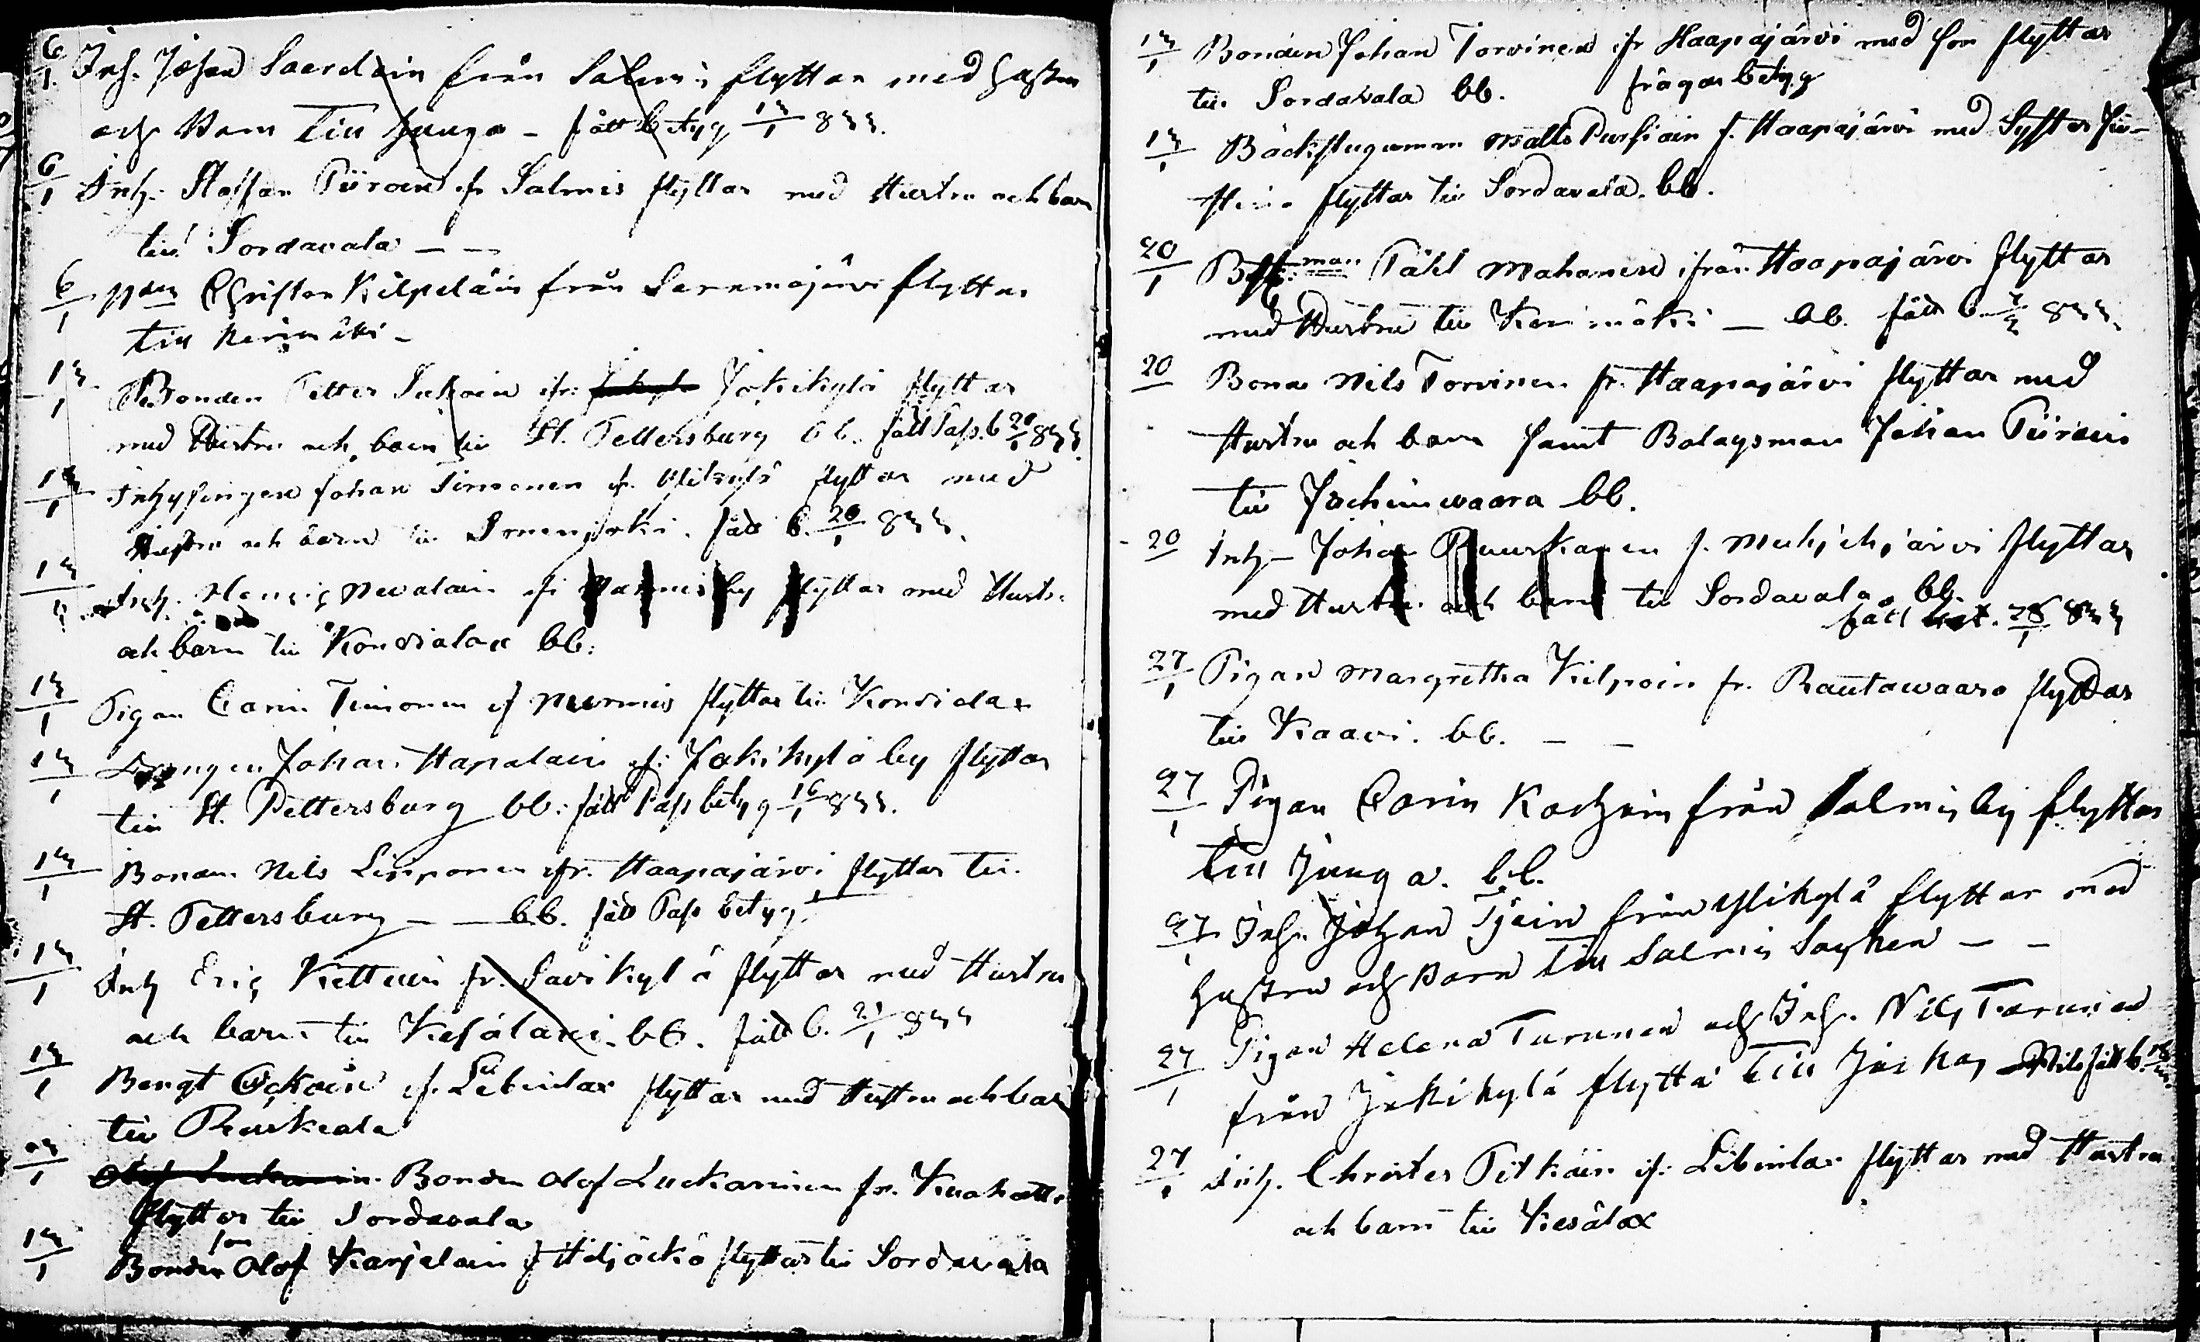 6/1 Inh. Johan Saerelain från Salmis flyttar med hustru
och Barn till Junga - fått betyg 13/1 833.
6/1 Inh. Staffan Piiroin ifr Salmis flyttar med Hustru och barn
till Sordavala - -
6/1 Christer Kilpeläin från Saramojärvi flyttar
till Kerimäki -
13/1 Bonden Petter ifr. Jokikylä flyttar
med Hustru och barn till St. Pettersburg bb. fått Pass b. 20/1 833.
13/1 Inhysingen Johan Simonen if. Ylikylä flyttar med
Hustru och barn till fått b. 20/1 833.
13/1 Inh. Henric Nevalain if. Nurmis by flyttar med Hustru
och barn till Kondialax bb.
13/1 Pigan Carin Timonen if Nurmis flyttar till Kondialax
13/1 Drängen Johan Hapalain if: Jokikylä by flyttar
till St. Pettersburg bb: fått Pass betyg 16/1 833.
13/1 Bonden Nils Lipponen ifr. Haapajärvi flyttar till
St. Pettersburg - - bb. fått Pass betyg
13/1 Inh Eric Kettuin fr. Savikylä flyttar med Hustru
och barn till Kesälaxi. bb. fått b. 21/1 833
13/1 Bengt if. Libinlax flyttar med Hustru och barn
till Ruskeala
13/1 Bonden Olof Luckarinen fr. Kuohatti
flyttar till Sordavala
13/1 Bonde son Olof Karjelain if Höljäckä flyttar till Sordavala
13/1 Bonden Johan Torvinen ifr Haapajärvi med son flyttar
till Sordavala bb. frågar betyg
13/1 Backstuguman Matts Pursiain f. Haapajärvi med Syster
flyttar till Sordavala. bb.
20/1 man Påhl Mahonen ifrån Haapajärvi flyttar
med Hustru till Kerimäki - bb. fått b. 833.
20 Bonde Nils Torvinen fr. Haapajärvi flyttar med
Hustru och barn samt Bolagsman Johan Piiroin
till Jochimvaara bb.
20 Inh - Johan Ruuskanen f. Muhjehjärvi flyttar
med Hustru och barn till Sordavala. bb.
fått att. 28/1 833
27/1 Pigan Margretha Kilpoin fr. Rautawaara flyttar
till Kaavi. bb. - -
27/1 Pigan Carin från Salmis by flyttar
till Junga. bb.
27/1 Inh. Johan från Ylikylä flyttar med
hustru och Barn till Salmis Socken - -
27/1 Pigan Helena Turunen och Inh. Nils Turunen
från Jokikylä flytta till Nils fått b.
27/1 Inh. Christer Pitkäin if. Libinlax flyttar med Hustru
och barn till Kesälax